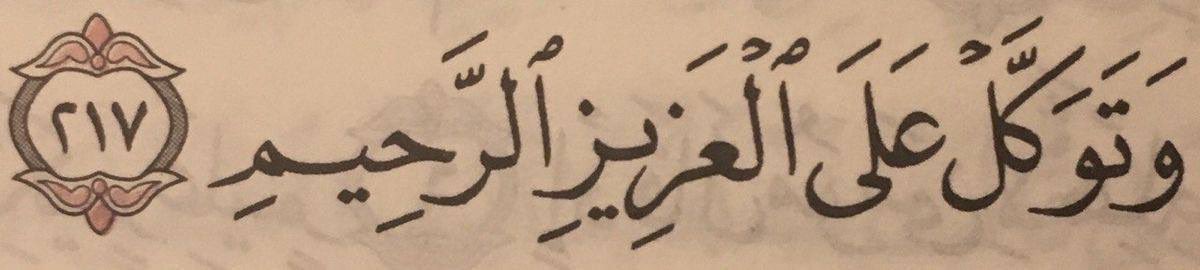 وَتَوَكَّلۡ عَلَى ٱلۡعَزِيزِ ٱلرَّحِيمِ ٢١٧